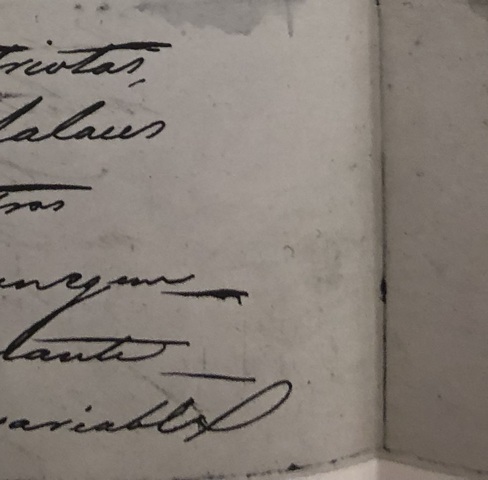 triotas,
alaces
tros
unque
lante
variable